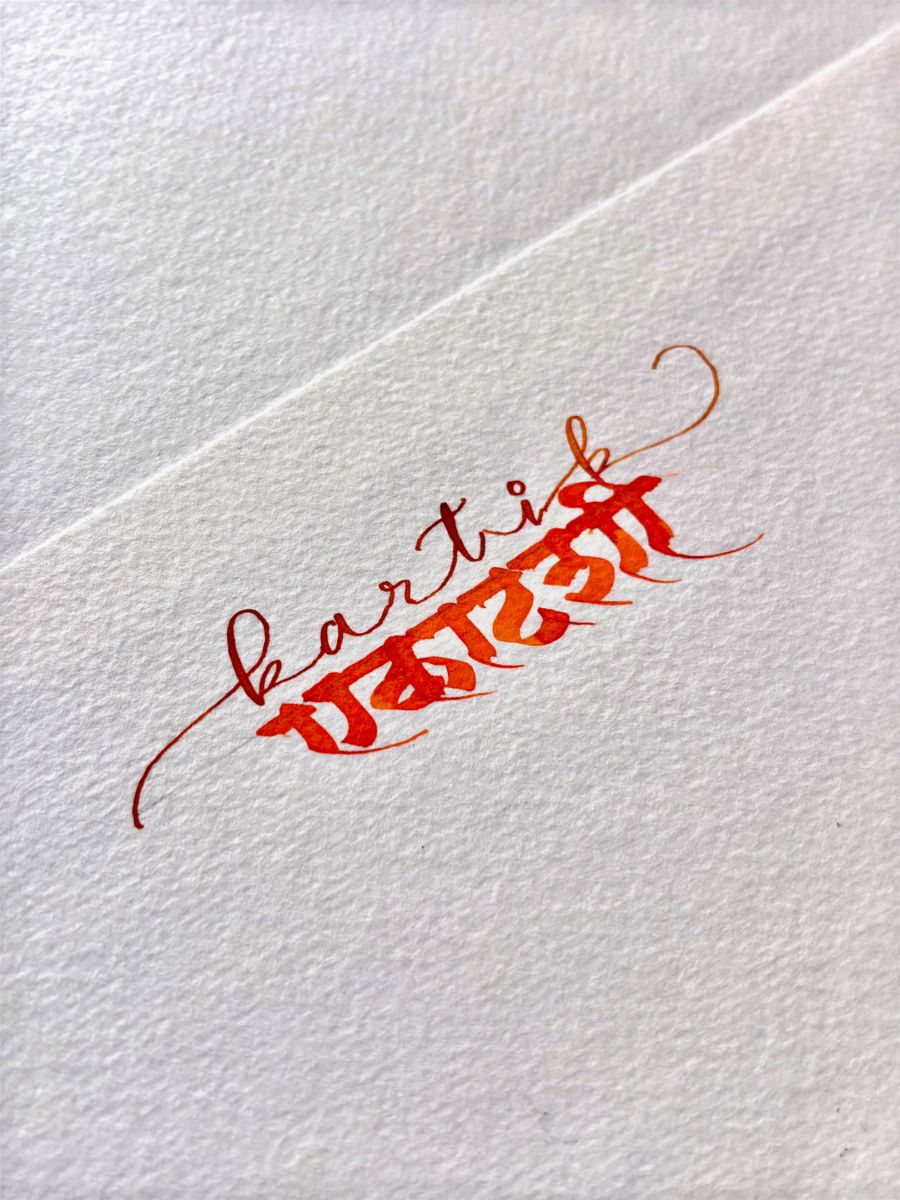 kartik
एकादशी